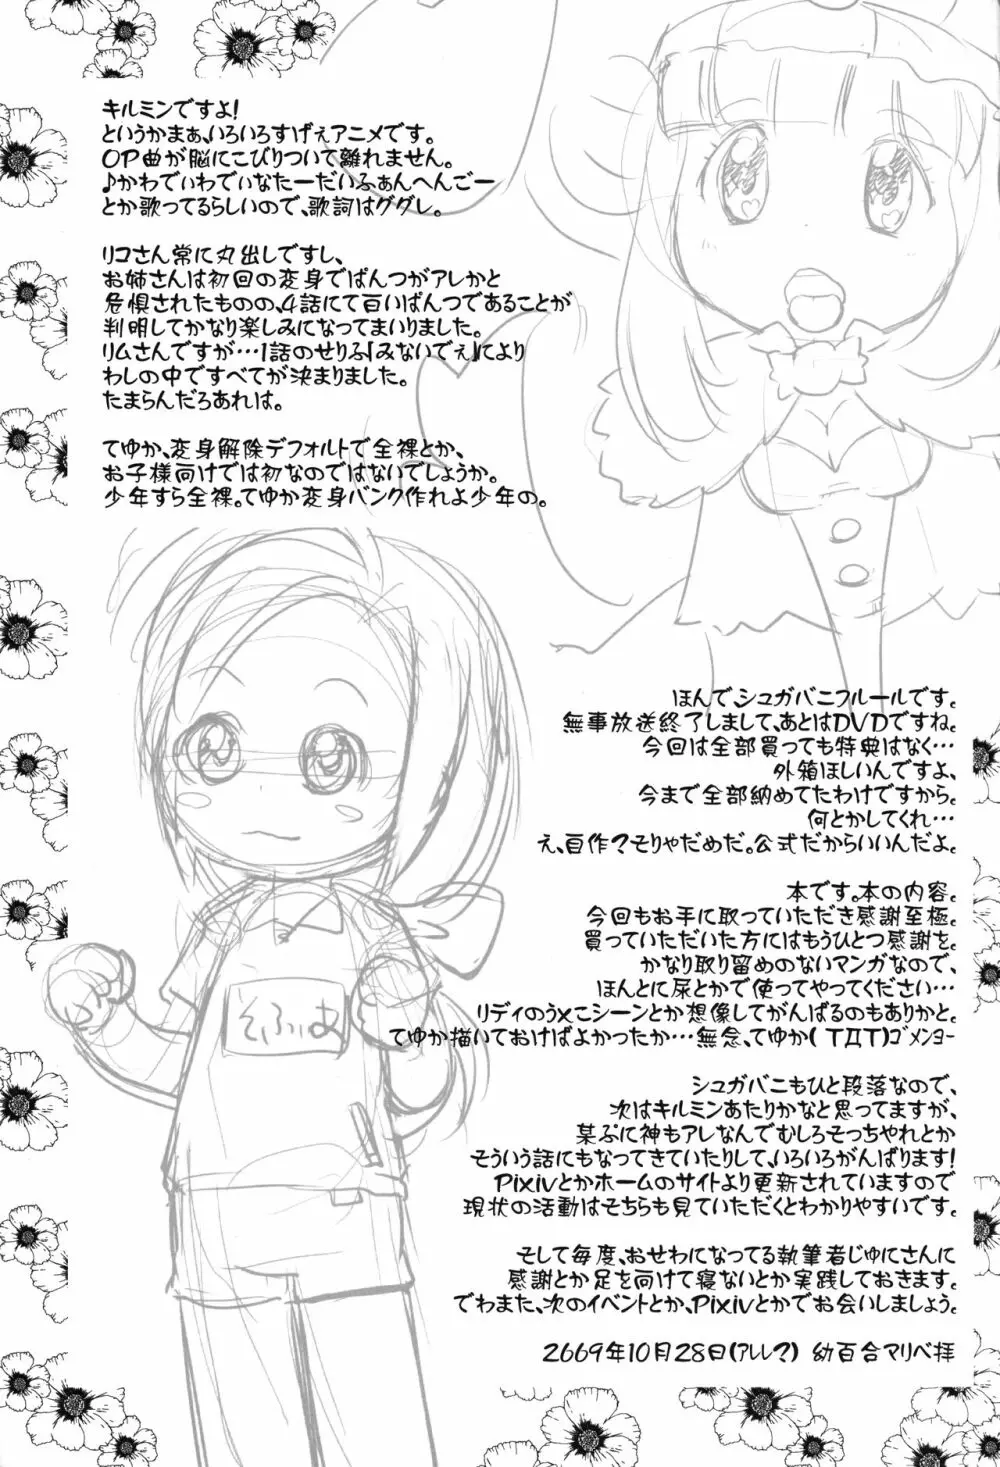 キルミンですよ!
というかまぁ、いろいろすげぇアニメです。
OP曲が脳にこびりついて離れません。
♪かわでぃわでぃなたーだいふぁんへんごー
とか歌ってるらしいので、歌詞はググレ。
リコさん常に丸出しですし、
お姉さんは初回の変身でぱんつがアレかと
危惧されたものの、4話にて白いぱんつであることが
判明してかなり楽しみになってまいりました。
リムさんですが…1話のせりふ「みないでぇ」により
わしの中ですべてが決まりました。
たまらんだろあれは。
てゆか、変身解除デフォルトで全裸とか、
お子様向けでは初なのではないでしょうか。
少年すら全裸。てゆか変身バンク作れよ少年の。
ほんで、シュガバニフルールです。
無事放送終了しまして、あとはDVDですね。
今回は全部買っても特典はなく…
外箱ほしいんですよ、
今まで全部納めてたわけですから。
何とかしてくれ…
え、自作?そりゃだめだ。公式だからいいんだよ。
そふぃあ
本です。本の内容。
今回もお手に取っていただき感謝至極。
買っていただいた方にはもうひとつ感謝を。
かなり取り留めのないマンガなので、
ほんとに尿とかで使ってやってください…
リディのう×こシーンとか想像してがんばるのもありかと。
てゆか描いておけばよかったか…無念、てゆか(TДT)ｺﾞﾒﾝﾖｰ
シュガバニもひと段落なので、
次はキルミンあたりかなと思ってますが、
某ぷに神もアレなんでむしろそっちやれとか
そういう話にもなってきていたりして、いろいろがんばります!
Pixivとかホームのサイトより更新されていますので
現状の活動はそちらも見ていただくとわかりやすいです。
そして毎度、おせわになってる執筆者じゅにさんに
感謝とか足を向けて寝ないとか実践しておきます。
でわまた、次のイベントとか、Pixivとかでお会いしましょう。
2669年10月28日(ｱﾚﾚ?) 幼百合マリベ拝